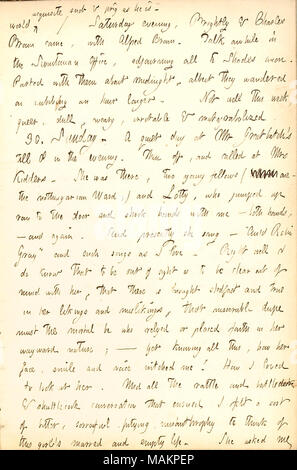 exquisite snob & prig as he is.
world Saturday evening, Brightly & Charles
Brown came, with Alfred Crown. Talk awhile in
the basement Office, adjourning all to Shades soon.
Parted with them about midnight, albeit they wandered
an hour longer. Not well this week
queer, dull, weary, irritable & 
30. Sunday. A quiet day at Mr Greatbatch's
till in the evening. Then off, and called at Mrs
Kidders. She was there, two young fellows ( one
the nothingarian Ward,) and Lotty, who jumped up
ran to the door and shook hands with me — both hands,
— and again. And presently she sang — "Auld Robin
Gray" and such songs as I love. Right well I
do know that to be out of sight is to be clear out of
mind with her, that there is naught stedfast and true
in her likings and mislikings, that miserable dupe
must the mortal be who relyed or placed faith in her
wayward nature; — yet knowing all this, how her
face, smile and voice witched me! How I loved
to look at her. Mid all the rattle and battledore
& shuttlecock conversation that ensued I felt a sort
of bitter, sorrowful, pitying to think of
this girl's marred and empty life. She asked me
MAKPEP
alamy